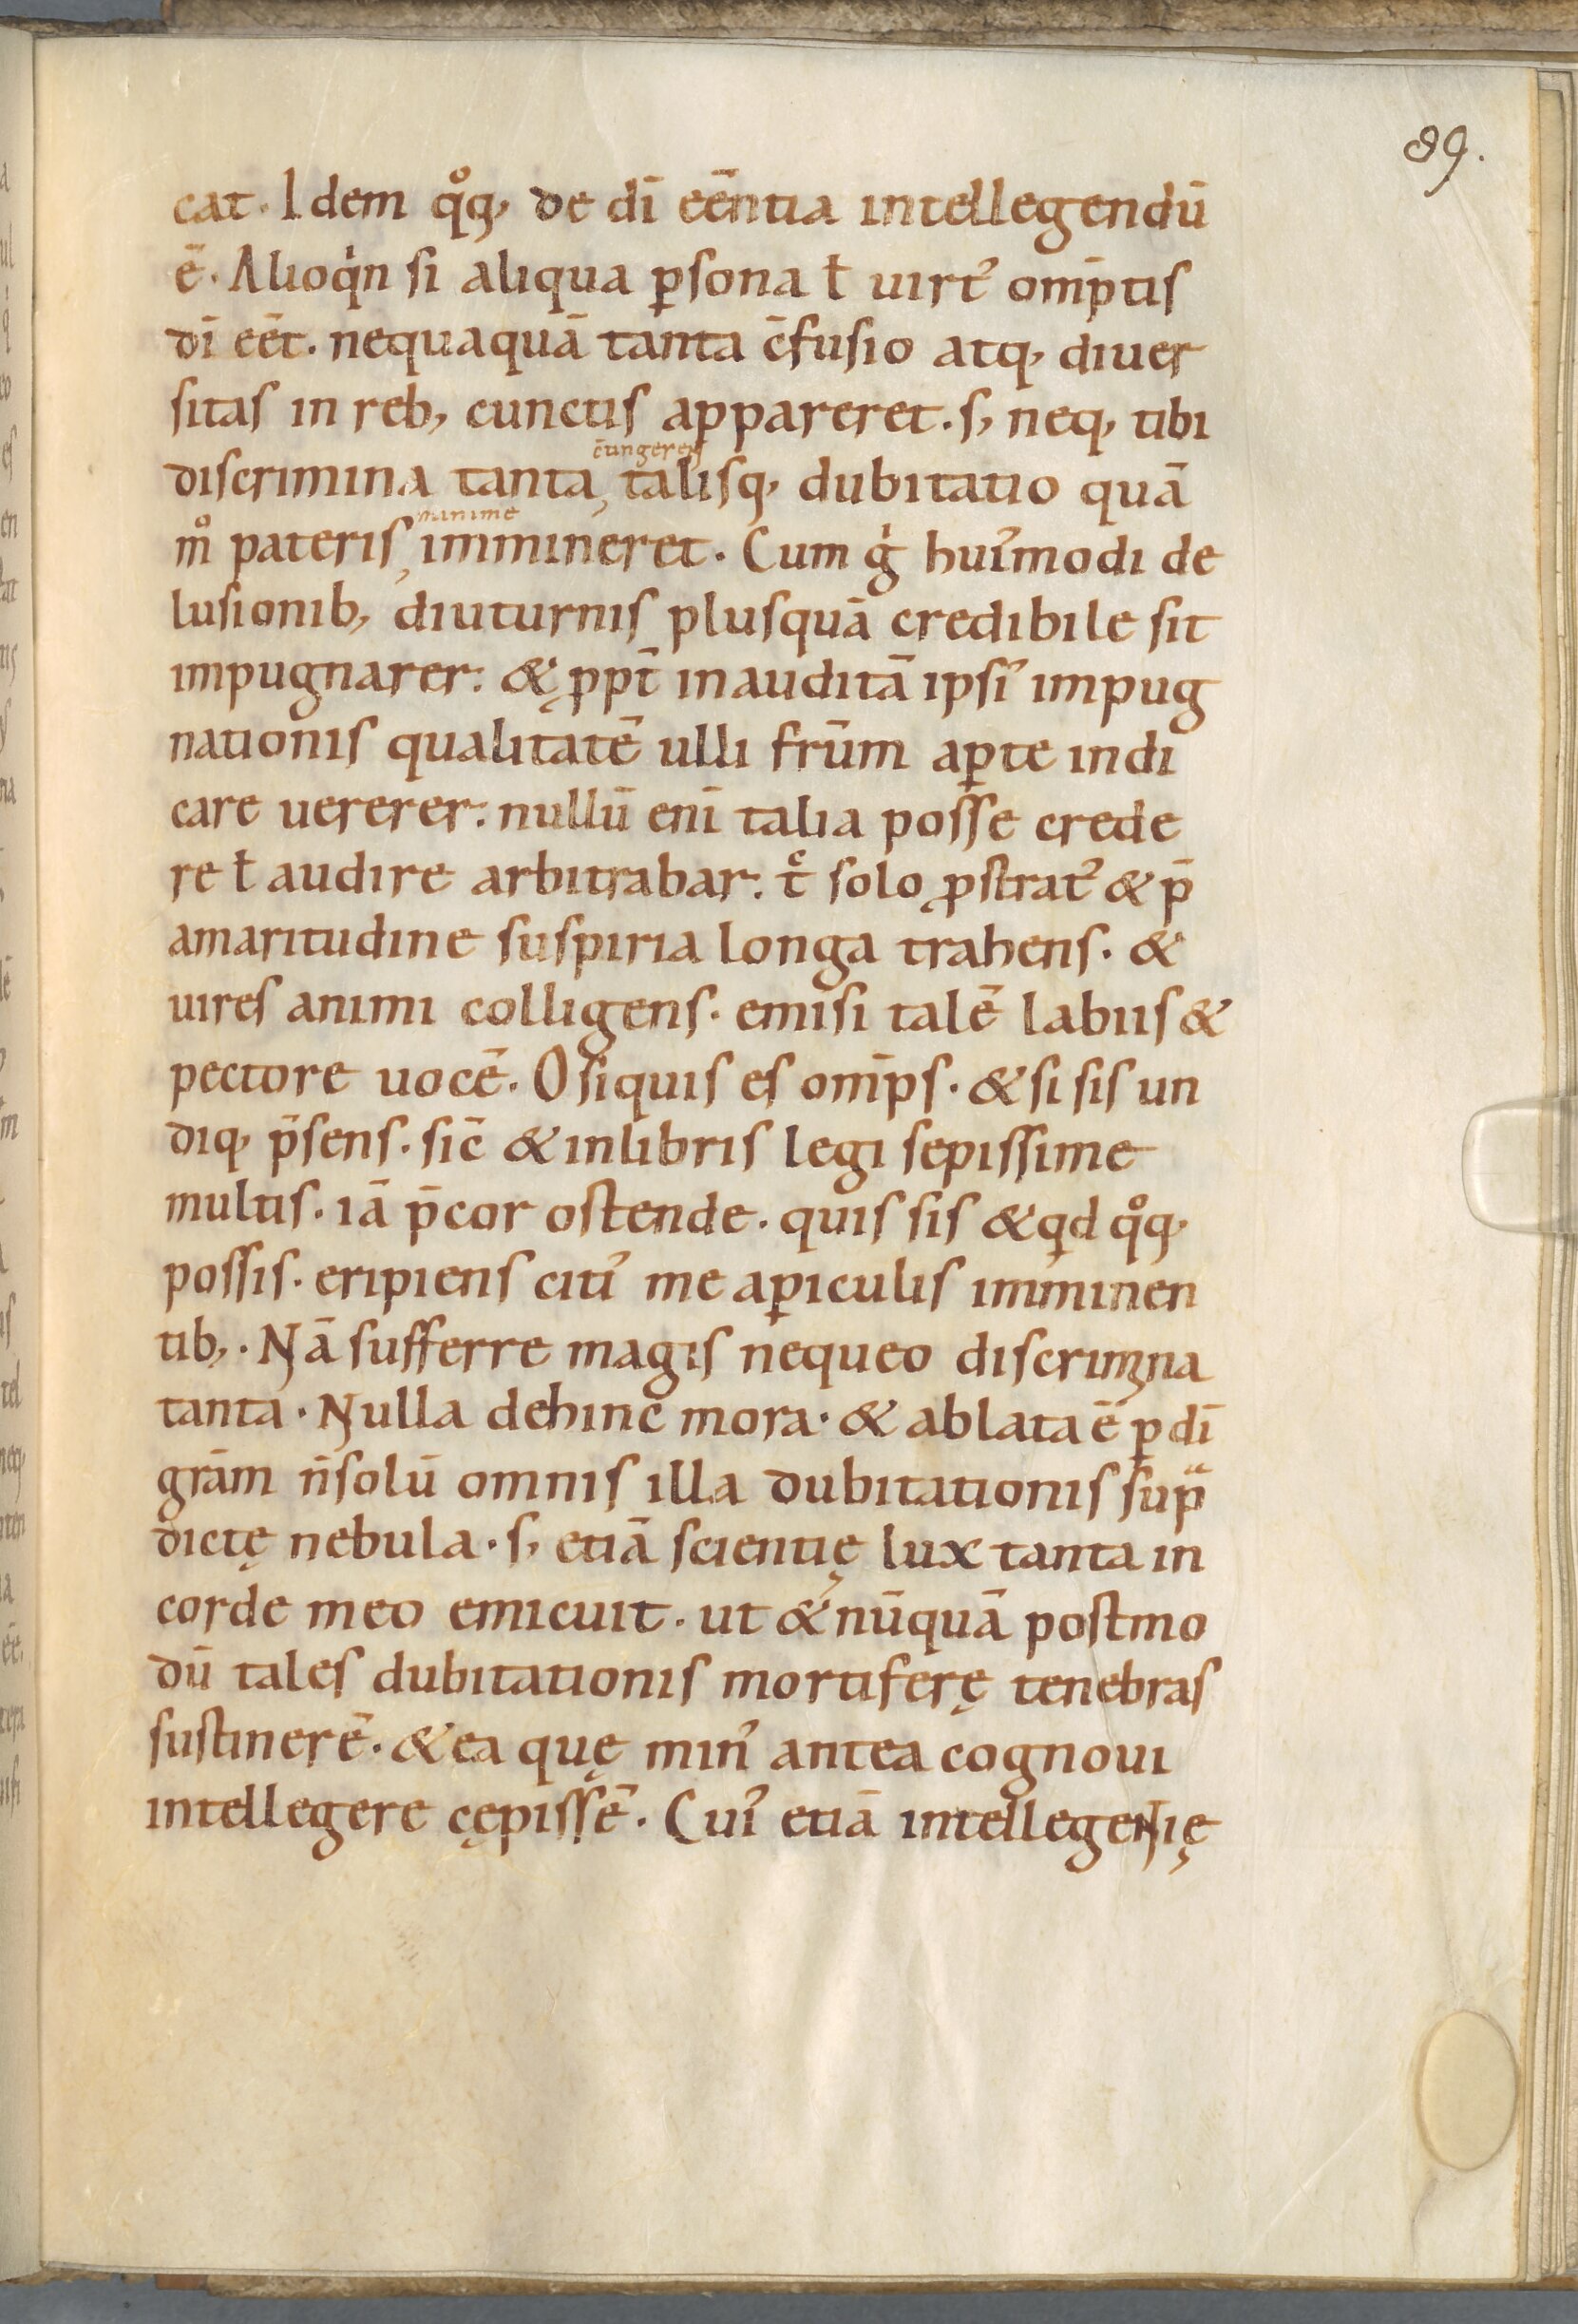 89.
cat. Idem qͦq, de dī eēntia intellegendū
ē. Alioqͥn si aliqua ꝑsona ł uirt᾽ om̄ptis
dī eēt. nequaquā tanta c̄fusio atq, diuer
sitas in reb, cunctis appareret. s, neq, tibi
c̄tingerent
discrimina tanta, talisq, dubitatio quā
minime
mͦ pateris, immineret. Cum gͥ hui᾽modi de
lusionib, diuturnis plusquā credibile sit
impugnarer: & ꝓpt̄ inauditā ipsi᾽ impug
nationis qualitatē ulli fr̄um aꝑte indi
care uererer: nullū enī talia posse crede
re ł audire arbitrabar: tͨ̄ solo ꝓstrat᾽ & p̄
amaritudine suspiria longa trahens. &
uires animi colligens. emisi talē labiis &
pectore uocē. O siquis es om̄ps. & si sis un
diq, p̄sens. sic̄ & in libris legi sepissime
multis. iā p̄cor ostende. quis sis & qd qͦq,
possis. eripiens citi᾽ me a ꝑiculis imminen
tib,. Nā sufferre magis nequeo discrimina
tanta. Nulla dehinc mora. & ablata ē ꝑ dī
gr̄am n̄ solū omnis illa dubitationis sup̄
dictę nebula. s, etiā scientię lux tanta in
corde meo emicuit. ut & nūquā postmo
dū tales dubitationis mortiferę tenebras
sustinerē. & ea quę min᾽ antea cognoui
intellegere cępissē. Cui᾽ etiā intellegeNtię